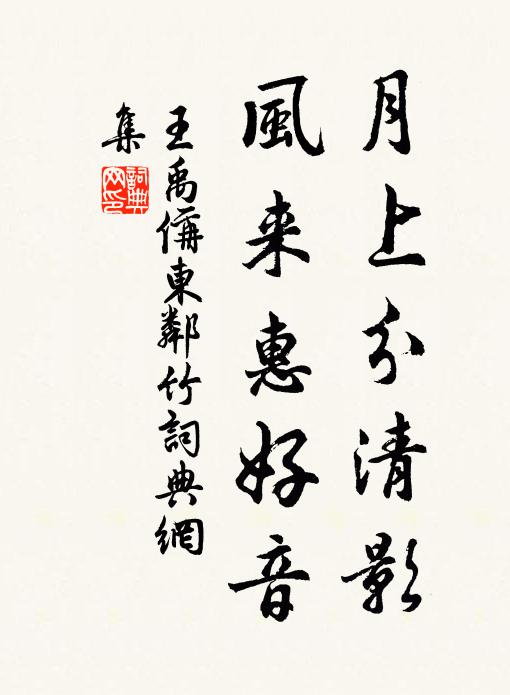 月上分清影
風来惠好音
王禹偁東鄰竹詞典網
集
詞典网印